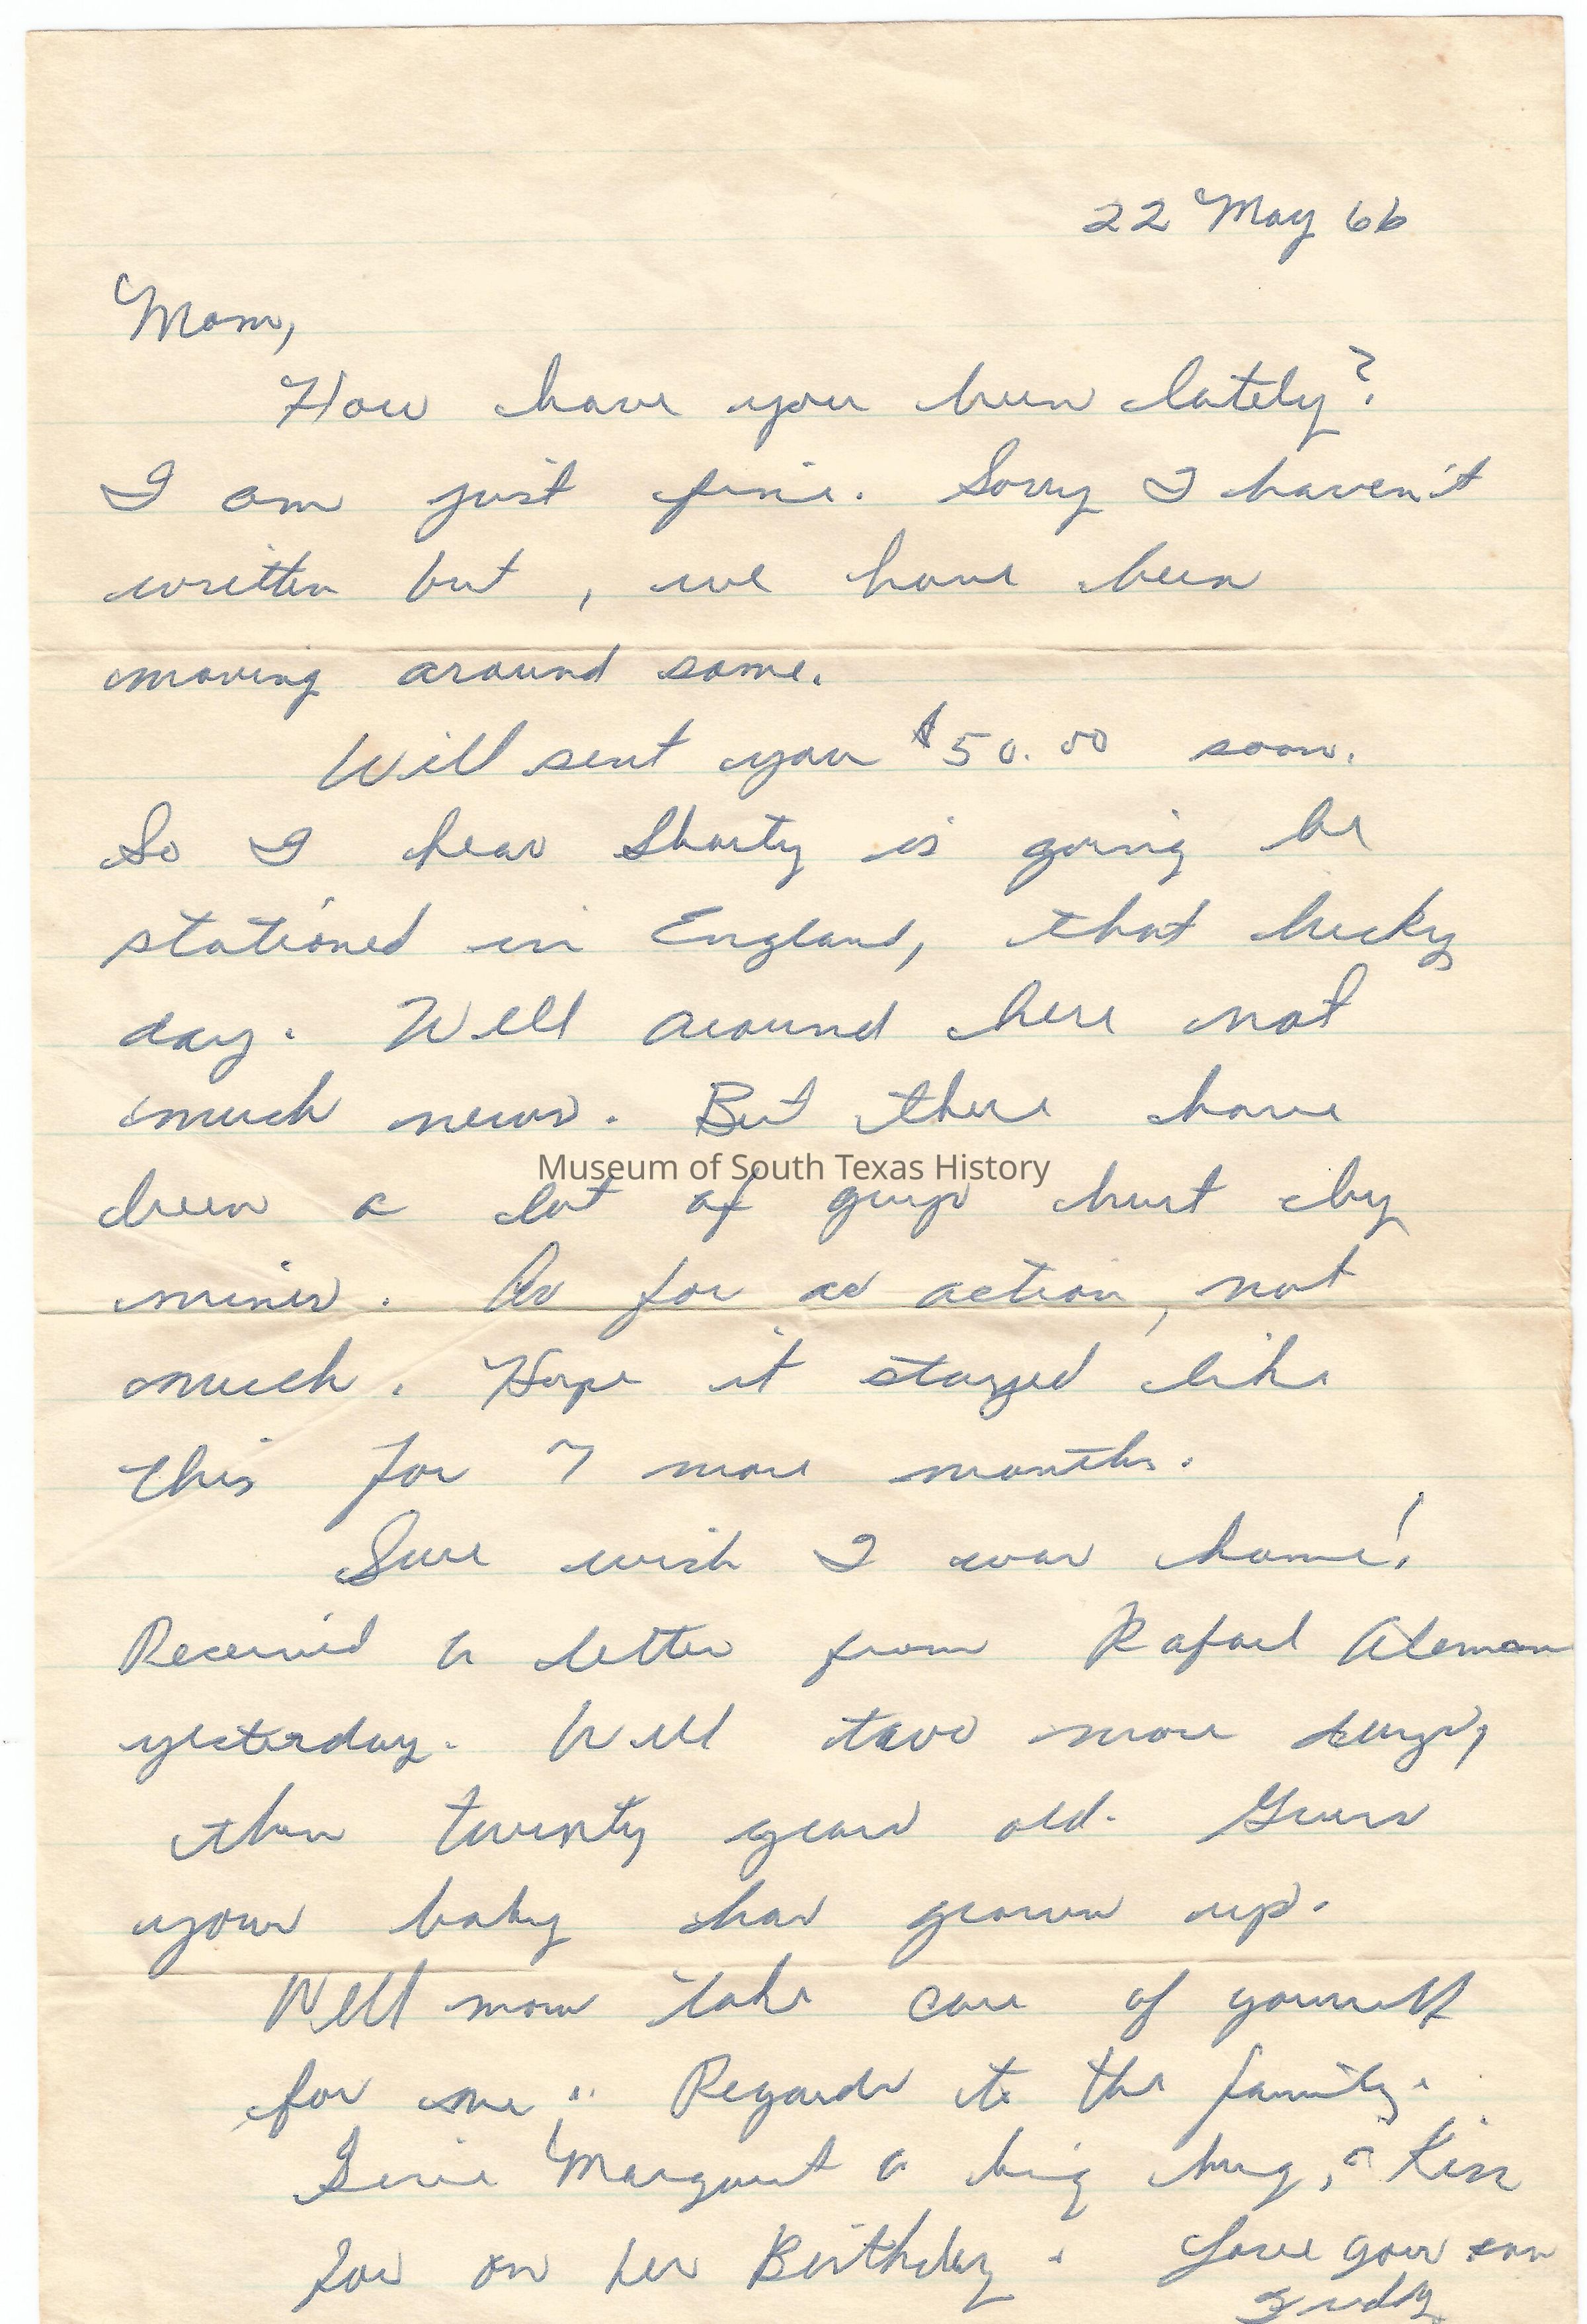 22 May 66
Mom,
How have you been lately?
I am just fine. Sorry I haven't
written but, we have been
moving around some.
Will sent you $50.00 soon.
So I hear Shorty is going be
stationed in England, that lucky
day. Well around here not
much news. But there have
Museum of South Texas History
been a lot of guys hurt by
mines. As for as action, not
much. Hope it stayed like
this for 7 more months.
Sure wish I was home!
Received a letter from Rafael Aleman
yesterday. Well two more days,
then twenty years old. Guess
your baby has grown up.
Well mom take care of yourself
for me. Regards to the family.
Give Margaret a big hug, a Kiss
for on her Birthday. Love your son